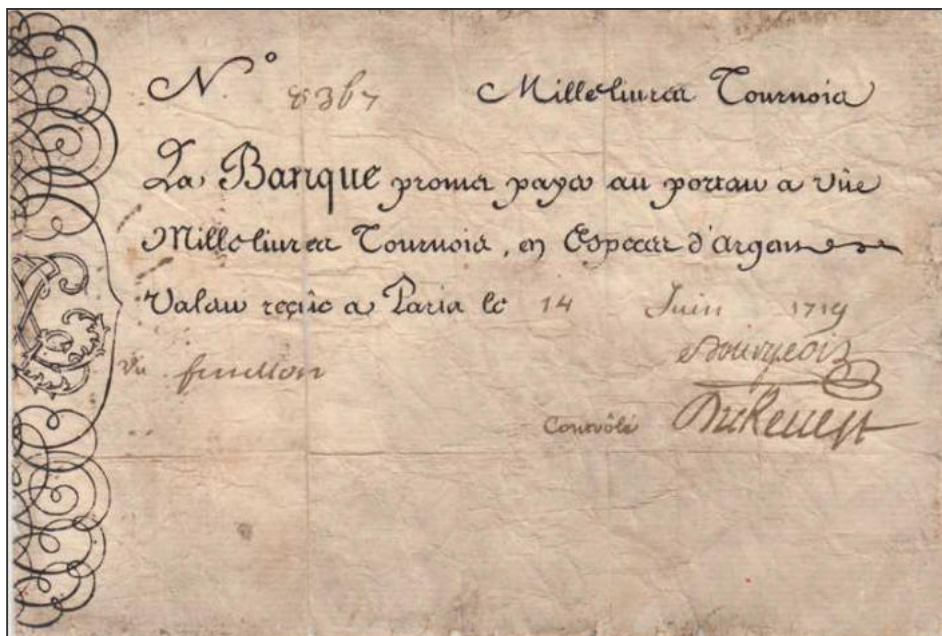 N.° 8367 Mille livres Tournois
La Banque promet payer au porteur a vüe
Mille livres Tournois, en Especes d'argent
Valeur reçüe a Paris le 14 Juin 1719
Vu fenellon Bourgeois
Contrôlé Durevest